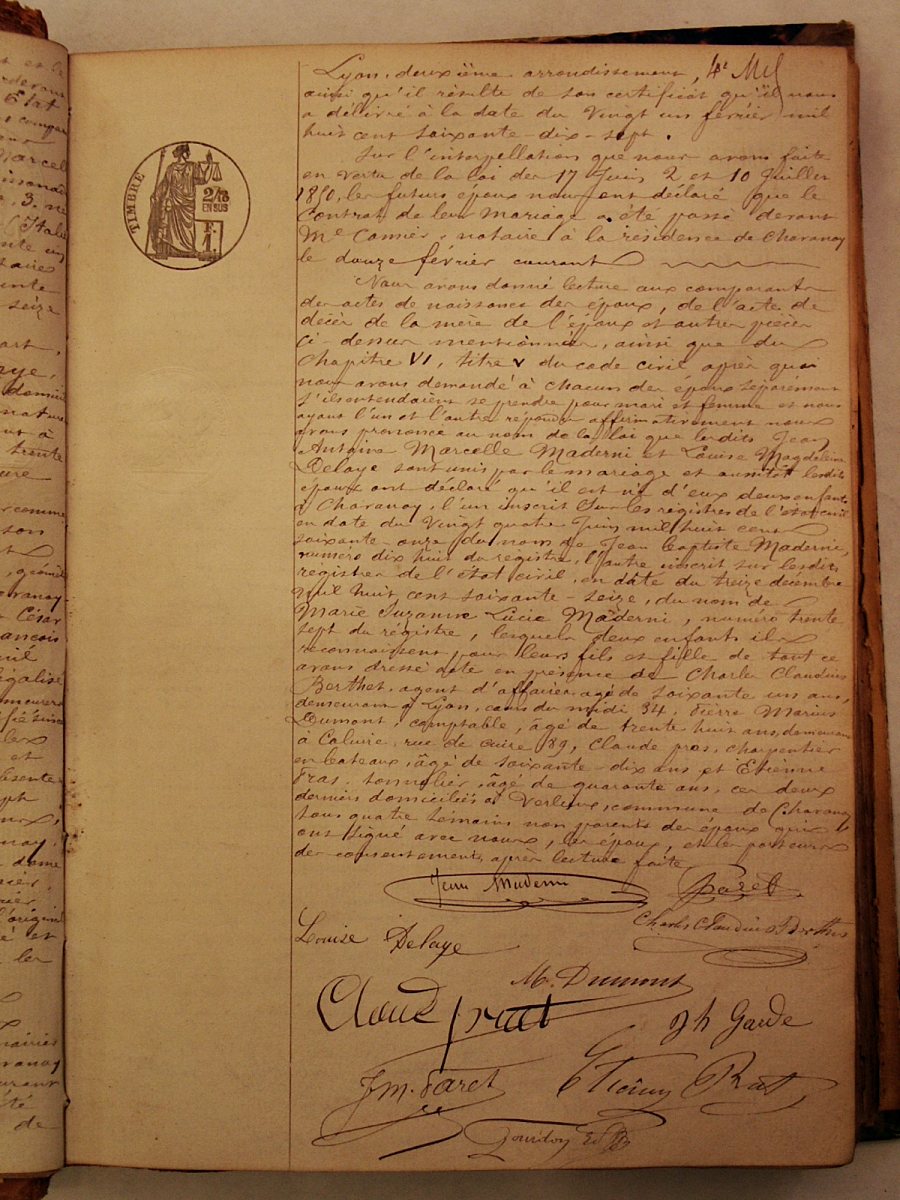 TIMBRE
2/10
EN SUS
F.
1.
Lyon, deuxième arrondissement,
ainsi qu'il résulte de son certificat qu'il nous
a délivré à la date du Vingt un février mil
huit cent soixante-dix-sept.
Sur l'interpellation que nous avons faite
en vertu de la loi des 17 Juin, 2 et 10 Juillet
1850, les futurs époux nous ont déclaré que le
Contrat de leur mariage a été passé devant
Me notaire à la résidence de Charanay
le douze février courant
Nous avons donné lecture aux comparants
des actes de naissances des époux, de l'acte de
décès de la mère de l'époux et autres pièces
ci-dessus mentionnées, ainsi que du
chapitre VI, titre V du code civil après quoi
nous avons demandé à chacun des époux séparément
s'ils entendaient se prendre pour mari et femme et nous
ayant l'un et l'autre répondu affirmativement nous
avons prononcé au nom de la loi que lesdits Jean
Antoine Marcelle Maderni et Louise Magdeleine
Delaye sont unis par le mariage et aussitôt lesdits
époux ont déclaré qu'il est né d'eux deux enfants
à Charanay, l'un inscrit sur les registres de l'état civil
en date du Vingt quatre Juin mil huit cent
soixante-onze du nom de Jean Baptiste Maderni,
numéro dix huit du registre, l'autre inscrit sur lesdits
registres de l'état civil, en date du treize décembre
mil huit cent soixante-seize, du nom de
Marie Suzanne Lucie Maderni, numéro trente
sept du régistre, lesquels deux enfants ils
reconnaissent pour leurs fils et fille de tout ce
avons dressé acte en présence de Charles Claudius
Berthet, agent d'affaires, agé de soixante un ans,
demeurant à Lyon, cours du midi 34, Pierre Marius
Dumont, comptable, âgé de trente huit ans, demeurant
à Caluire, rue de cuire 89, Claude prat, charpentier
en bateaux, âgé de soixante-dix ans et Etienne
Pras, tonnelier, âgé de quarante ans, ces deux
derniers domiciliés à Verlieux, commune de Charanay
tous quatre témoins non parents des époux qui
ont signé avec nous, les époux, et les porteurs
des consentements, après lecture faite
Jean Maderni Paret
Louise Delaye Charles Claudius Berthet
M. Dumont
Claud prat Jh Garde
J m. Paret Etienne Prat
Gourdon